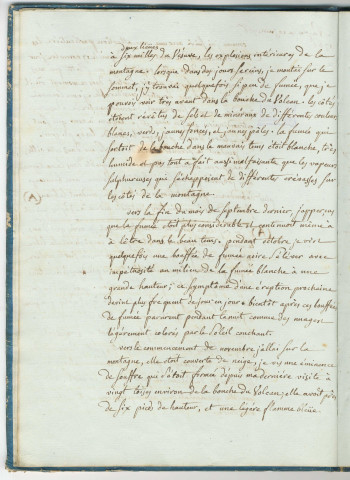 deux lieues
à six milles du Vésuve, les explosions intérieures de la
montagne. lorsque dans des jours sereins, je montai sur le
sommet, j'y trouvais quelquefois si peu de fumée, que je
pouvois voir très avant dans la bouche du Volcan. les côtés
étoient revêtus de sels et de minéraux de différentes couleurs
blancs, verds, jaunes foncés, et jaunes pâles. la fumée qui
sortoit de la bouche dans le mauvais tems étoit blanche, très
humide et pas tout a fait aussi malfaisante que les vapeurs
sulphureuses qui s'échappoient de différentes crevasses sur
les côtés de la montagne.
vers la fin du mois de septembre dernier, j'apperçus
que la fumée étoit plus considérable et continuoit même à
l'être dans le beau tems. pendant octobre, je vis
quelquefois une bouffée de fumée noire s'élever avec
impétuosité au milieu de la fumée blanche à une
grande hauteur; ce symptome d'une éruption prochaine
devint plus frequent de jour en jour & bientôt après ces bouffées
de fumée parurent pendant la nuit comme des nuages
légèrement colorés par le soleil couchant.
vers le commencement de novembre j'allai sur la
montagne, elle étoit couverte de neige; je vis une éminence
de souffre qui s'étoit formée depuis ma dernière visite à
vingt toises environ de la bouche du Volcan; elle avoit près
de six pieds de hauteur, et une légère flamme bleüe